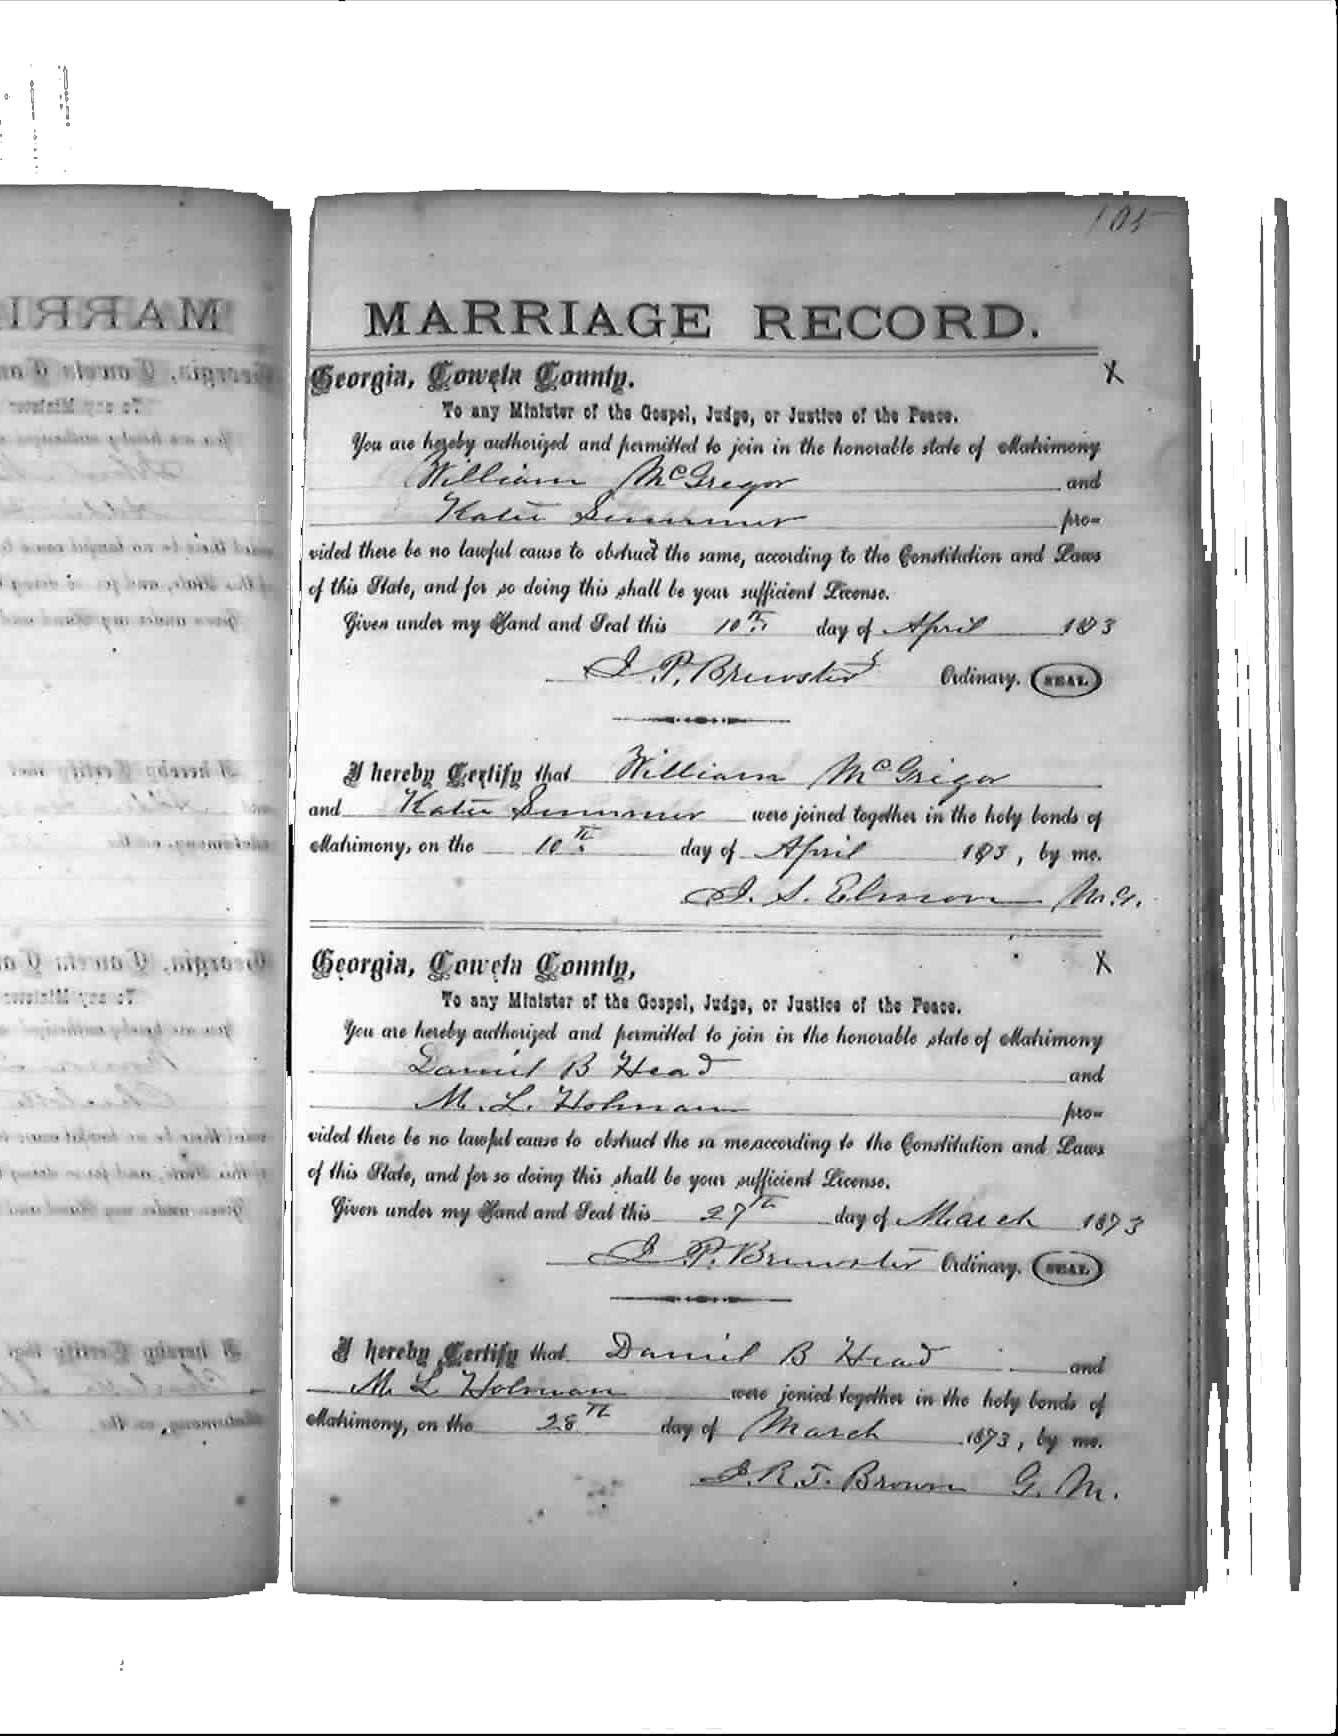 105
MARRIAGE RECORD.
Georgia, Coweta County. X
To any Minister of the Gospel, Judge, or Justice of the Peace.
You are hereby authorized and permitted to join in the honorable state of Matrimony
William McGregor and
Katie Summer pro-
vided there be no lawful cause to obstruct the same, according to the Constitution and Laws
of this State, and for so doing this shall be your sufficient License.
Given under my Hand and Seal this 10th day of April 1873
J. P. Brewster Ordinary. SEAL
I hereby Certify that William McGrigor
and Katie Summer were joined together in the holy bonds of
Matrimony, on the 10th day of April 1873, by me.
J. S. Elmore M.G.
Georgia, Coweta County, X
To any Minister of the Gospel, Judge, or Justice of the Peace.
You are hereby authorized and permitted to join in the honorable state of Matrimony
Daniel B Head and
M. L. Holman pro-
vided there be no lawful cause to obstruct the sa me,according to the Constitution and Laws
of this State, and for so doing this shall be your sufficient License.
Given under my Hand and Seal this 27th day of March 1873
J. P. Brewster Ordinary. SEAL
I hereby Certify that Daniel B Head and
M. L Holman were jonied together in the holy bonds of
Matrimony, on the 28th day of March 1873, by me.
J. R. T. Brown G. M.